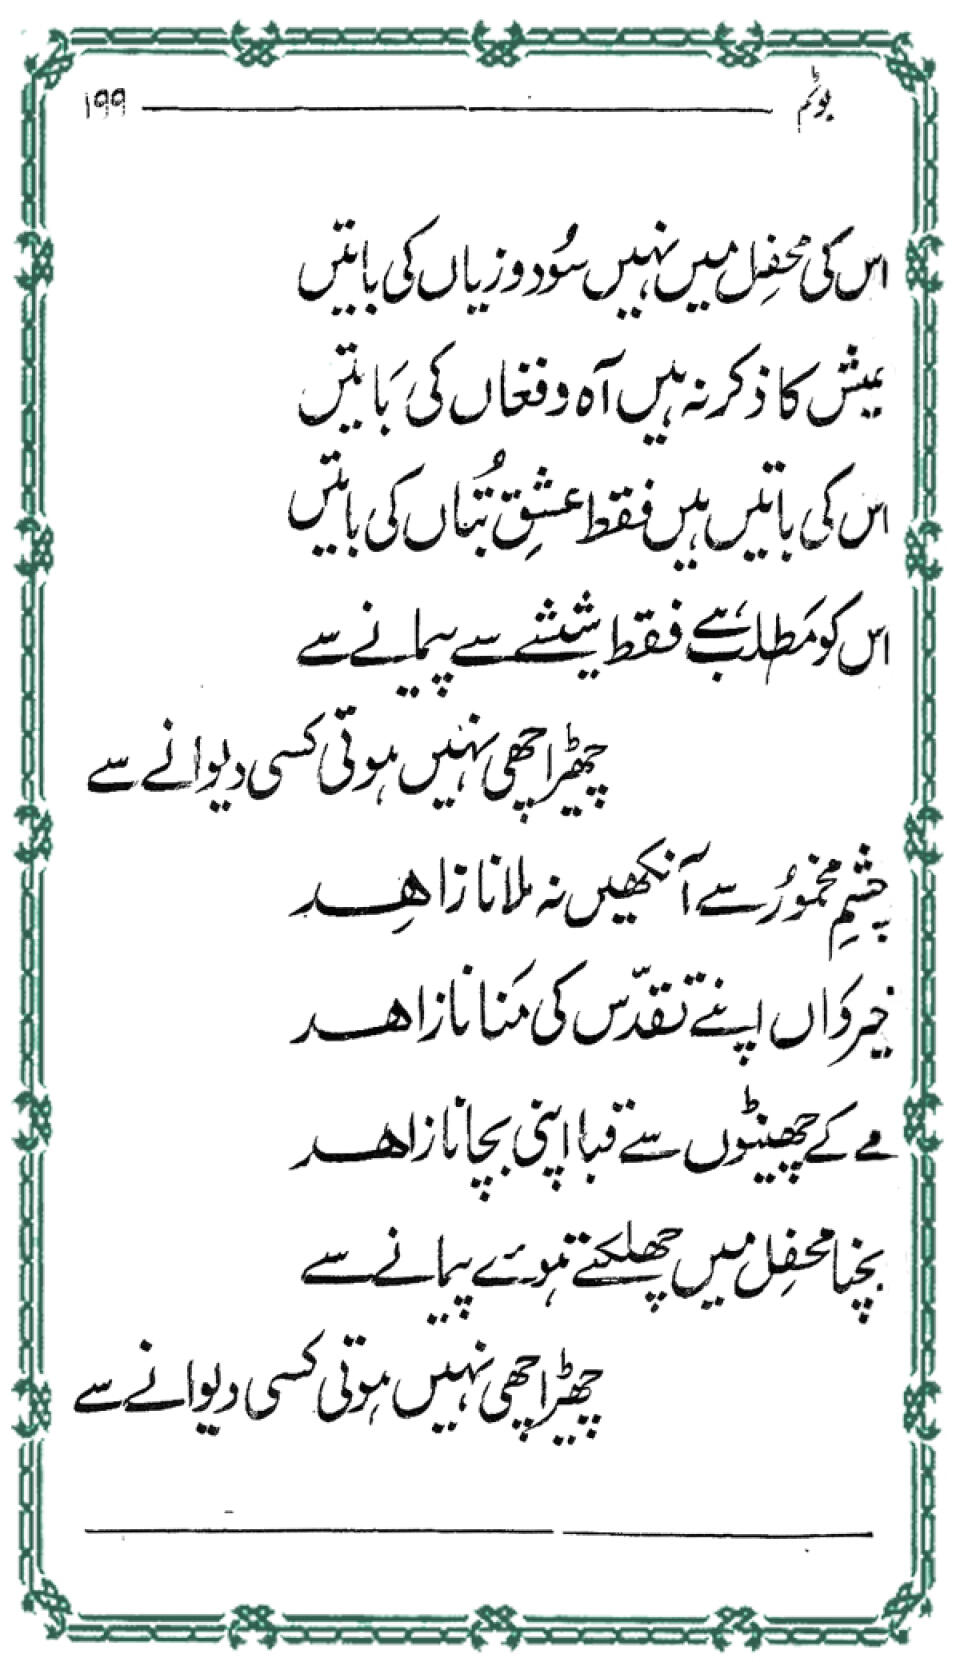 بوٹم ۱۹۹
اس کی محفِل میں نہیں سُود و زیاں کی باتیں
عیش کا ذکر نہ ہیں آہ و فغاں کی بَاتیں
اس کی باتیں ہیں فقط عشقِ بُتاں کی باتیں
اس کو مَطلب ہے فقط شیشے سے پیمانے سے
چھیڑ اچھی نہیں ہوتی کسی دیوانے سے
چشمِ مخمُور سے آنکھیں نہ ملانا زاھِد
خیر واں اپنے تقدّس کی مَنانا زاھد
مے کے چھینٹوں سے قبا اپنی بچانا زاھد
بچنا محفِل میں چھلکتے ہوئے پیمانے سے
چھیڑ اچھی نہیں ہوتی کسی دیوانے سے